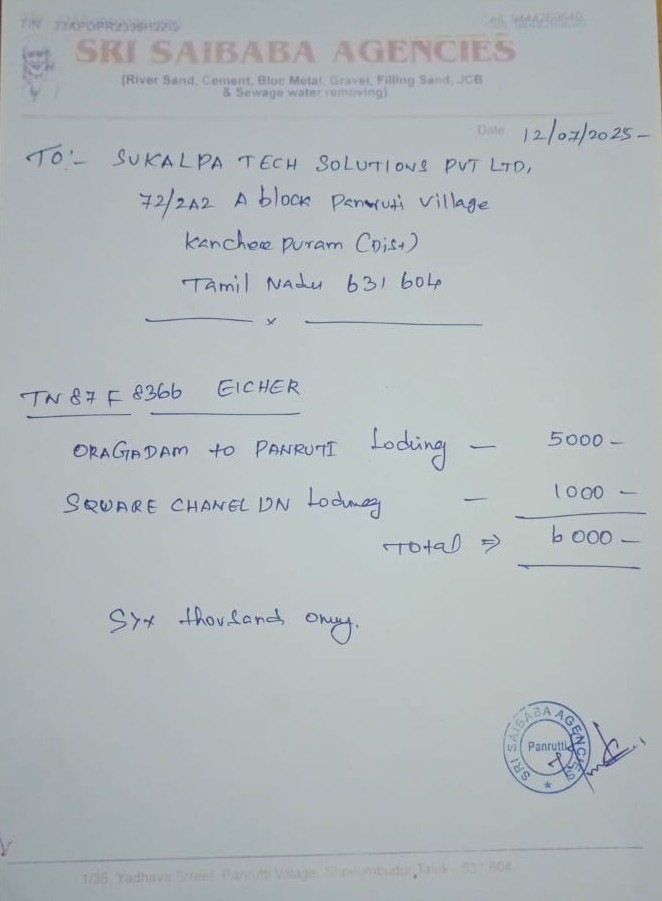 SRI SAIBABA AGENCIES
(River Sand, Cement, Blue Metal, Gravel, Filling Sand, JCB
& Sewage water removing)
Date 12/07/2025-
TO:- SUKALPA TECH SOLUTIONS PVT LTD,
72/2A2 A block Panruti Village
Kancheepuram (Dist)
Tamil Nadu 631 604
x
TN 87 F 8366 EICHER
ORAGADAM to PANRUTI Loding - 5000-
SQUARE CHANEL UN Loding - 1000-
Total ⇒ 6000-
Six thousand only.
SRI SAIBABA AGENCIES
Panrutti
1/36, Yadhava Street, Panrutti Village, Taluk - 631 604